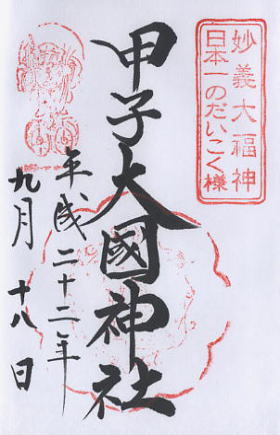 妙義大福神
日本一のだいこく様
甲子大國神社
平成二十二年
九月十八日